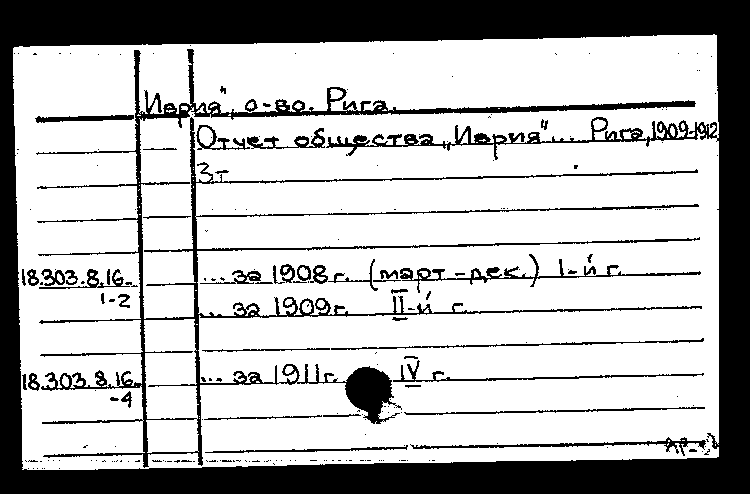 „Иврия", о-во. Рига.
Отчет общества „Иврия"... Рига, 1909-1912
3т
18.303.8.16- ... за 1908г. (март-дек.) I-й г.
1-2 ... за 1909г. II-й г.
18.303.8.16- ... за 1911г. IV г.
-4